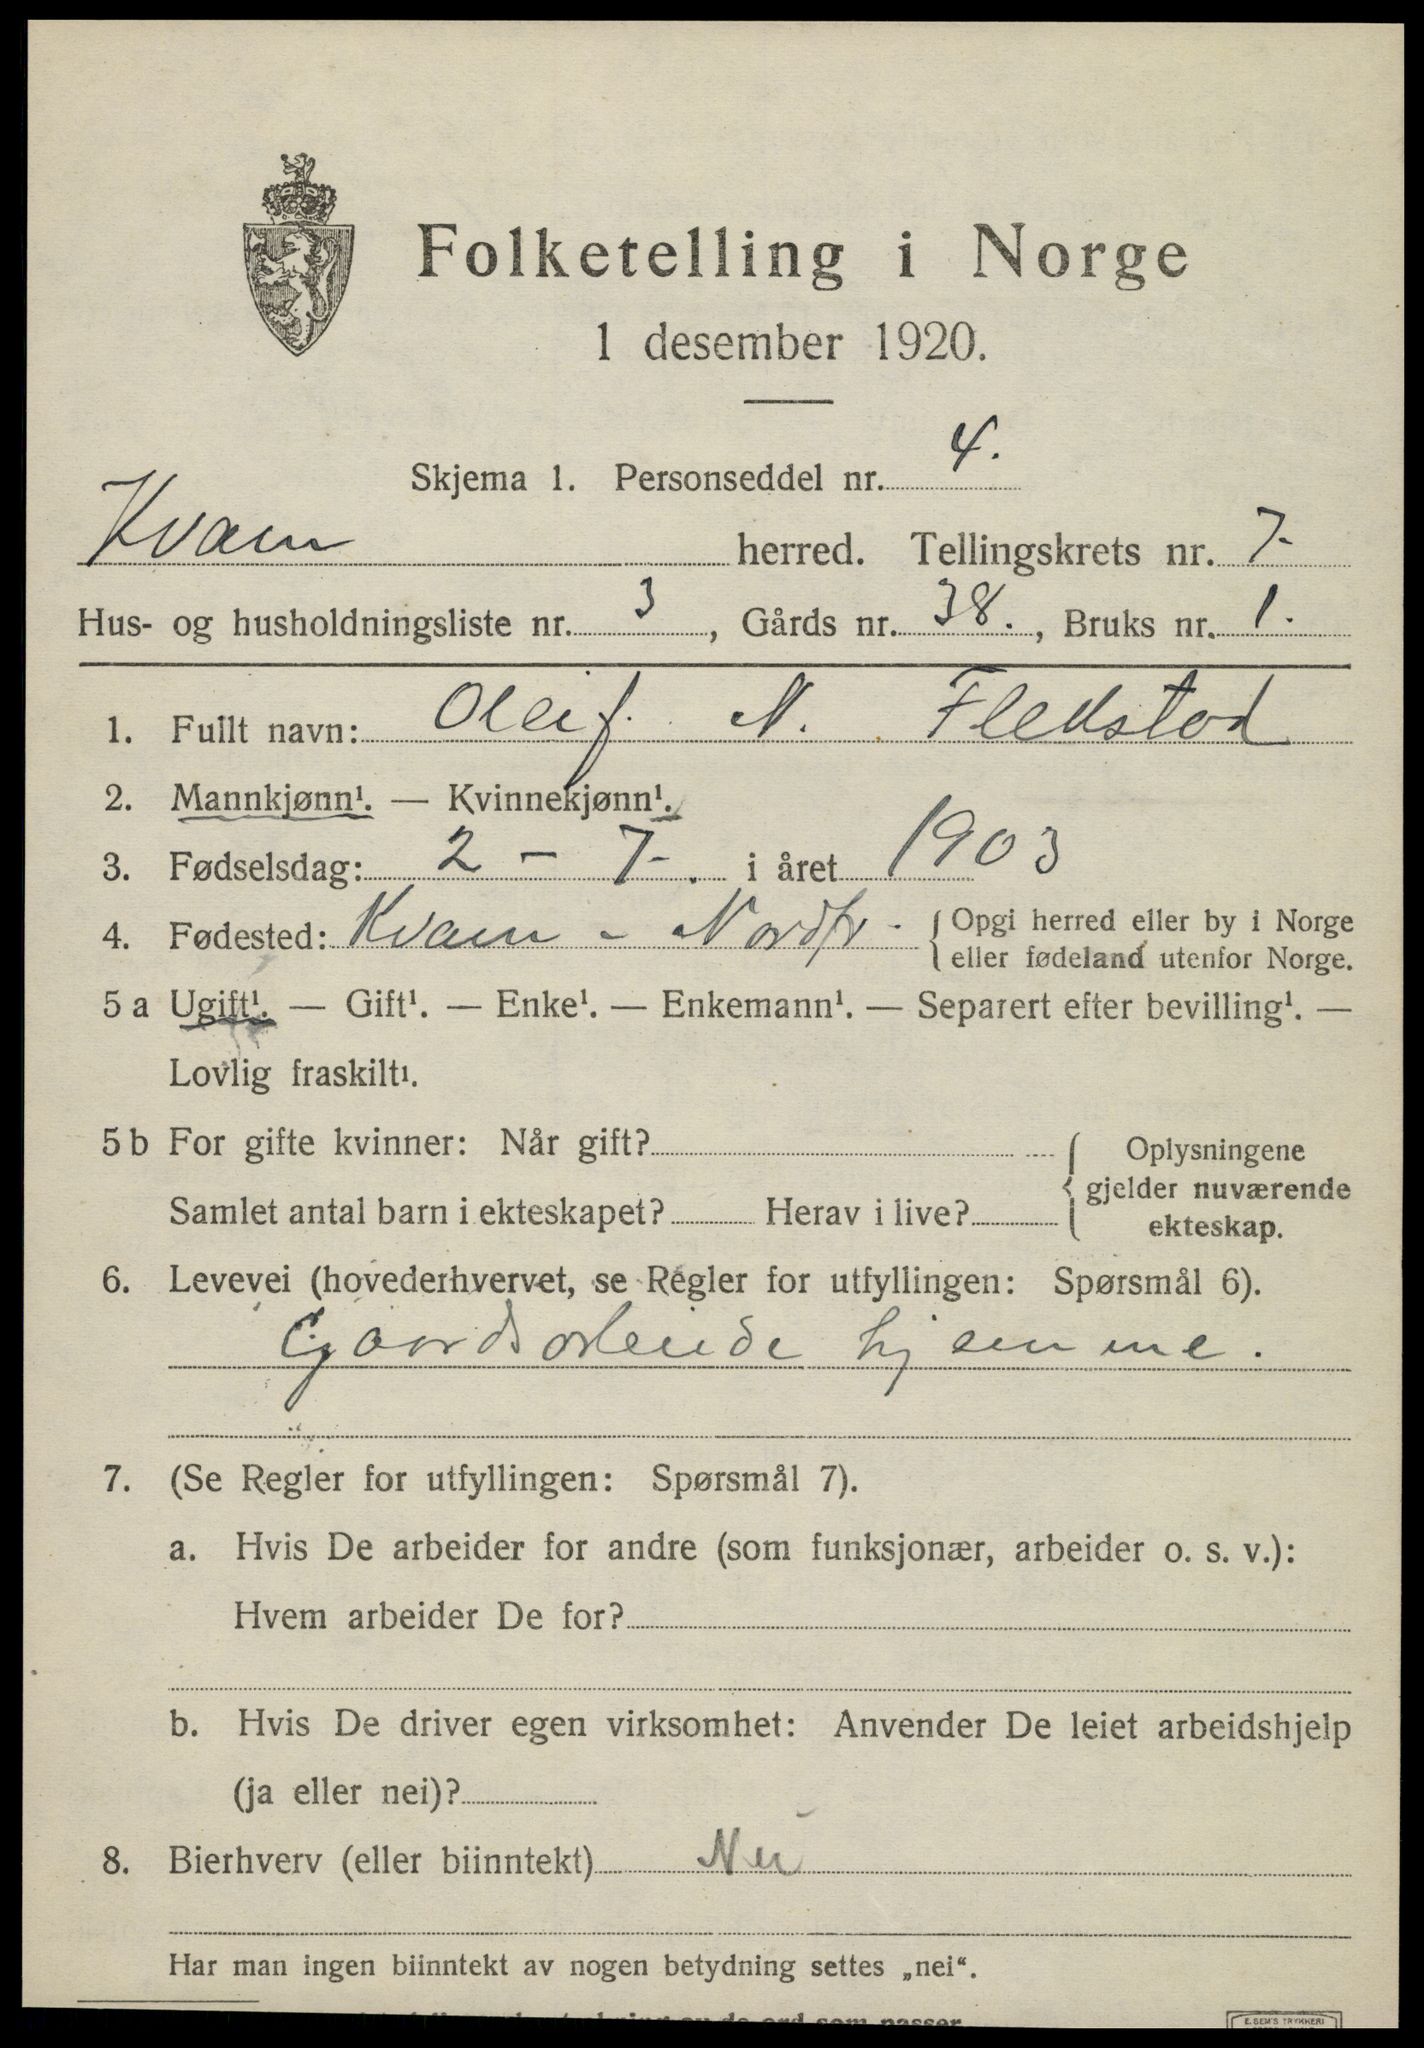 Folketelling i Norge
1 desember 1920.
Skjema 1. Personseddel nr. 4.
Kvam herred. Tellingskrets nr. 7-
Hus- og husholdningsliste nr. 3, Gårds nr. 38., Bruks nr. 1.
1. Fullt navn: Oleif N. Flekstad
2. Mannkjønn¹. — Kvinnekjønn¹.
3. Fødselsdag: 2 - 7-. i året 1903
4. Fødested: Kvam - Nordfr - { Opgi herred eller by i Norge
eller fødeland utenfor Norge.
5 a Ugift¹. — Gift¹. — Enke¹. — Enkemann¹. — Separert efter bevilling¹. —
Lovlig fraskilt¹.
5 b For gifte kvinner: Når gift? { Oplysningene
gjelder nuværende
Samlet antal barn i ekteskapet? Herav i live? ekteskap.
6. Levevei (hovederhvervet, se Regler for utfyllingen: Spørsmål 6).
Gaardsarbeide hjemme.
7. (Se Regler for utfyllingen: Spørsmål 7).
a. Hvis De arbeider for andre (som funksjonær, arbeider o. s. v.):
Hvem arbeider De for?
b. Hvis De driver egen virksomhet: Anvender De leiet arbeidshjelp
(ja eller nei)?
8. Bierhverv (eller biinntekt) Nei
Har man ingen biinntekt av nogen betydning settes „nei“.
av de ord som passer.
E. SEM'S TRYKKERI